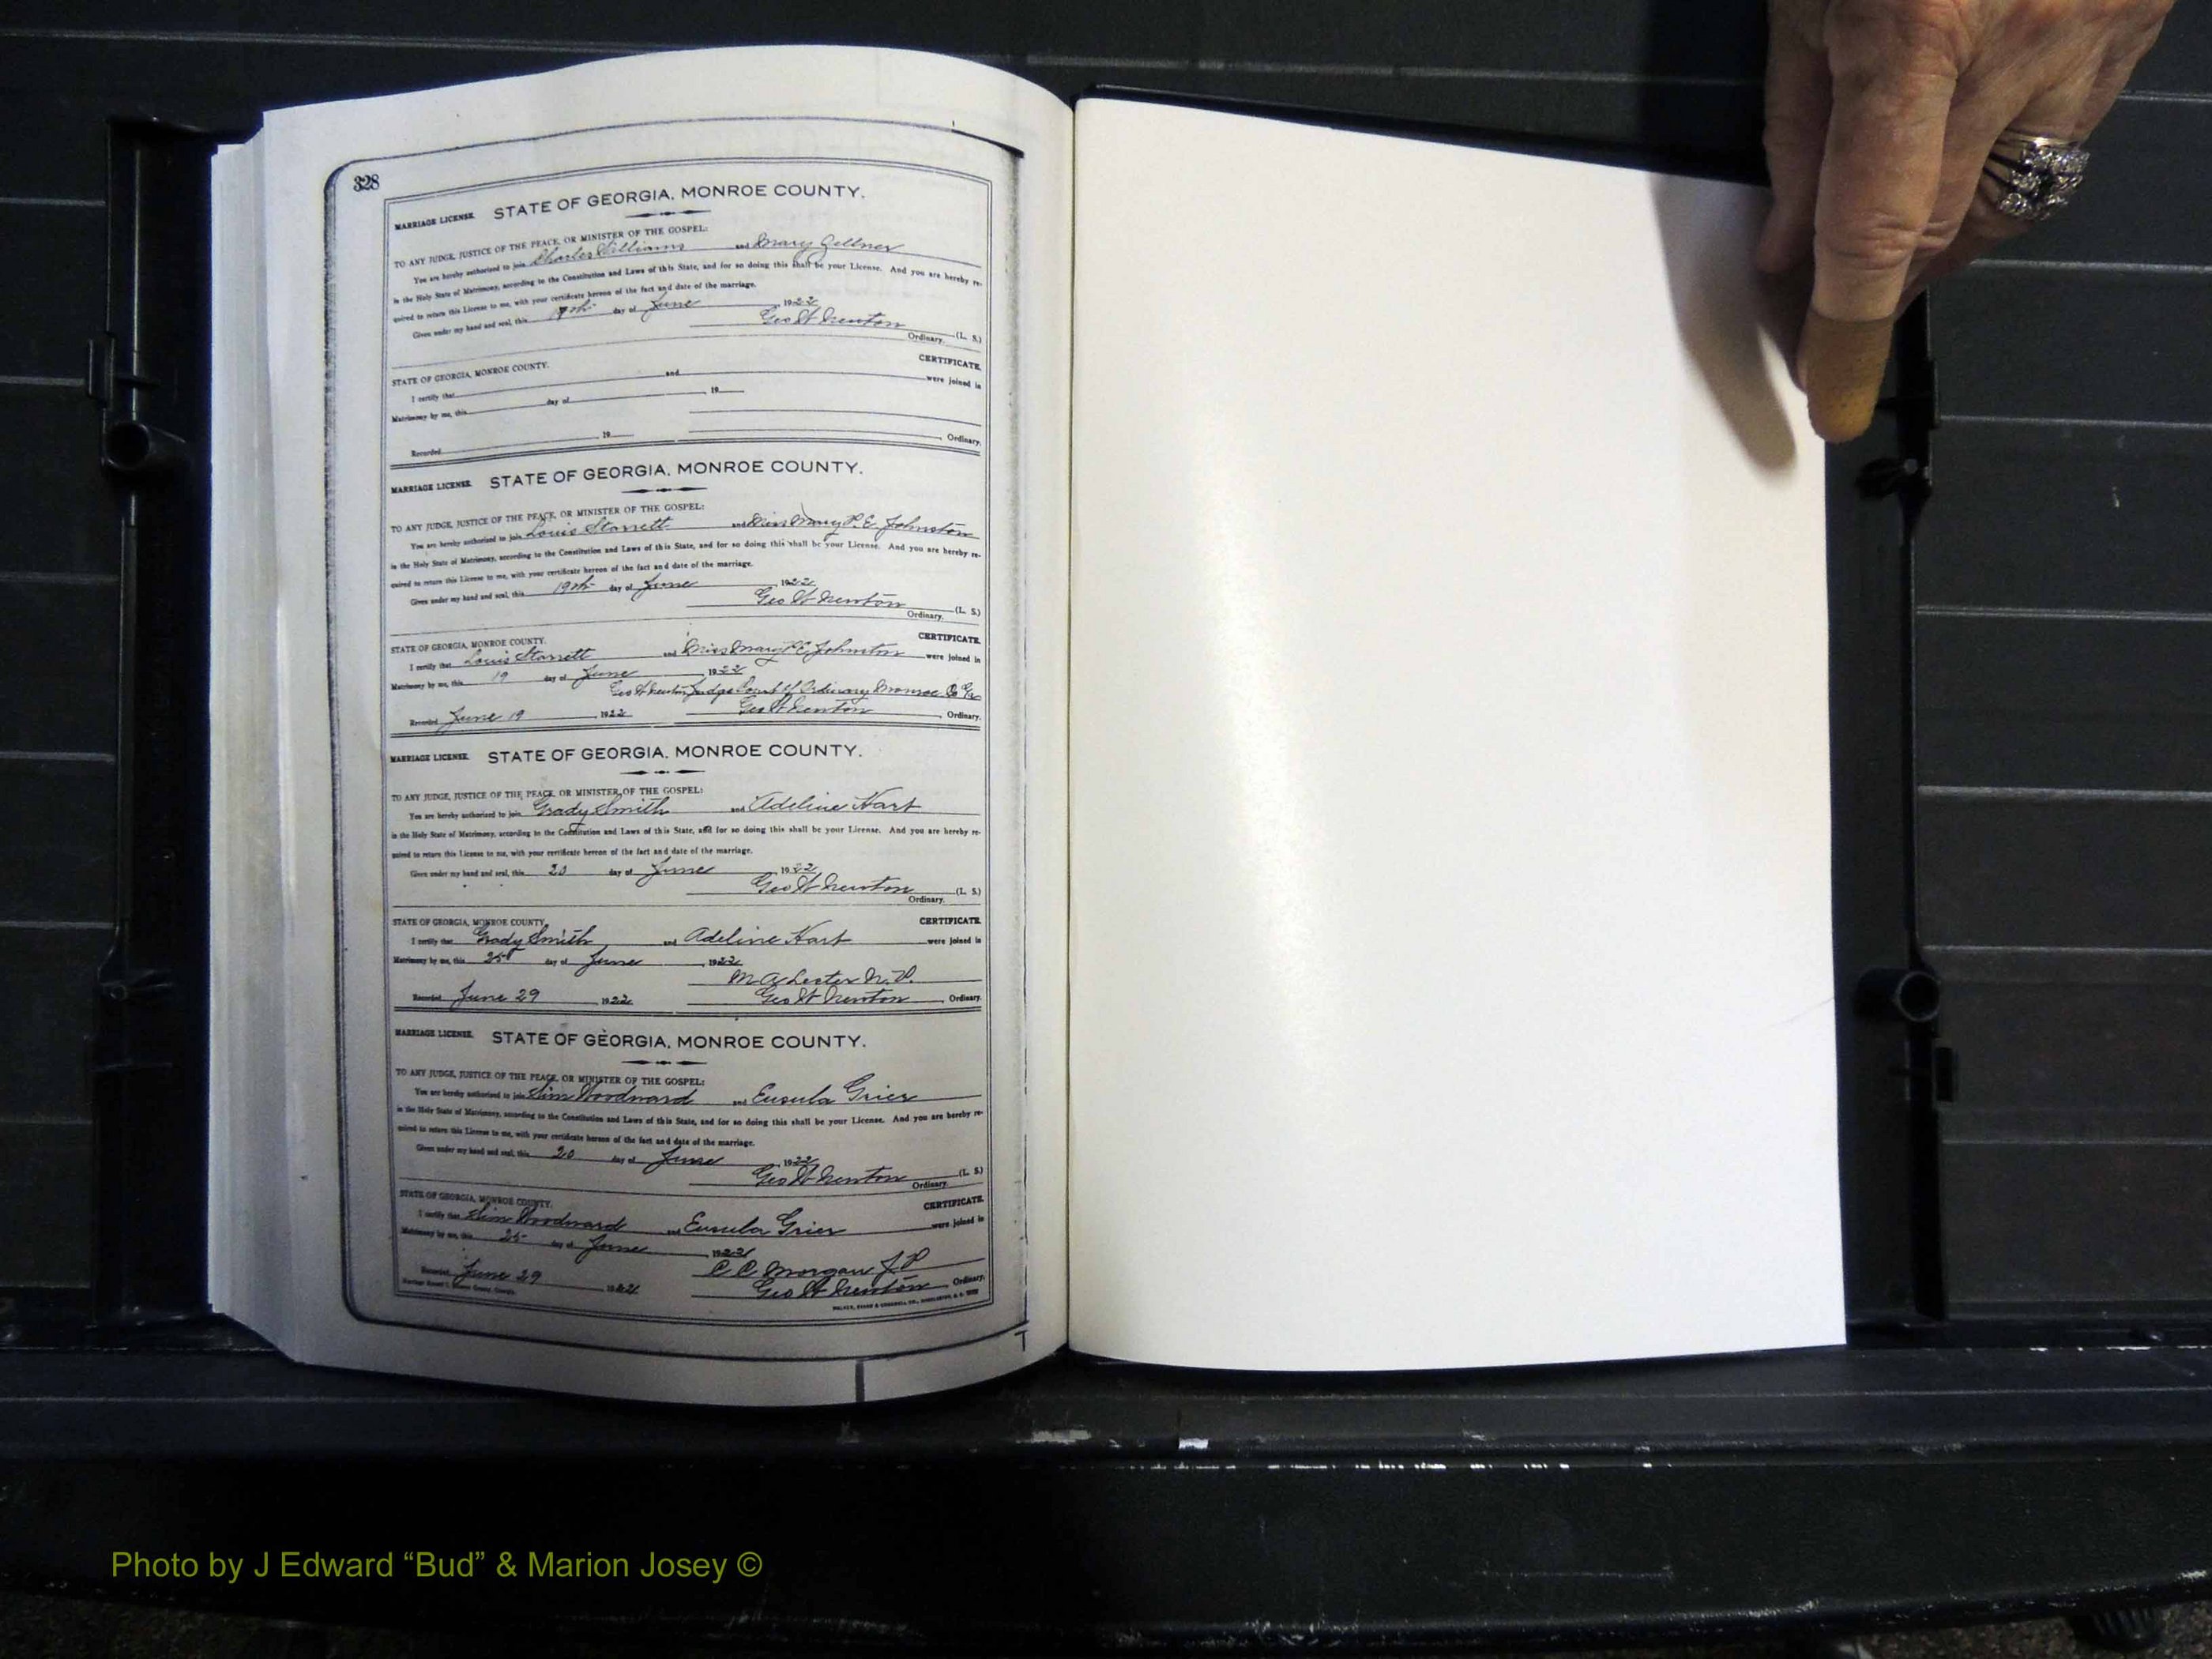 328
MARRIAGE LICENSE. STATE OF GEORGIA, MONROE COUNTY.
TO ANY JUDGE, JUSTICE OF THE PEACE, OR MINISTER OF THE GOSPEL:
You are hereby authorized to join Charles Williams and Mary Gellner
in the Holy State of Matrimony, according to the Constitution and Laws of this State, and for so doing this shall be your License. And you are hereby re-
quired to return this License to me, with your certificate hereon of the fact and date of the marriage.
Given under my hand and seal, this 19th day of June, 1922
Geo W Newton (L. S.)
Ordinary.
STATE OF GEORGIA, MONROE COUNTY. CERTIFICATE.
I certify that and were joined in
Matrimony by me, this day of , 19
Recorded 19 , Ordinary.
MARRIAGE LICENSE. STATE OF GEORGIA, MONROE COUNTY.
TO ANY JUDGE, JUSTICE OF THE PEACE, OR MINISTER OF THE GOSPEL:
You are hereby authorized to join Louis Starrett and Miss Mary P. E. Johnston
in the Holy State of Matrimony, according to the Constitution and Laws of this State, and for so doing this shall be your License. And you are hereby re-
quired to return this License to me, with your certificate hereon of the fact and date of the marriage.
Given under my hand and seal, this 19th day of June, 1922
Geo W Newton (L. S.)
Ordinary.
STATE OF GEORGIA, MONROE COUNTY. CERTIFICATE.
I certify that Louis Starrett and Miss Mary P E Johnston were joined in
Matrimony by me, this 19 day of June, 1922
Geo W Newton Judge Court of Ordinary Monroe Co Ga
Recorded June 19, 1922 Geo W Newton, Ordinary.
MARRIAGE LICENSE. STATE OF GEORGIA, MONROE COUNTY.
TO ANY JUDGE, JUSTICE OF THE PEACE, OR MINISTER OF THE GOSPEL:
You are hereby authorized to join Grady Smith and Adeline Hart
in the Holy State of Matrimony, according to the Constitution and Laws of this State, and for so doing this shall be your License. And you are hereby re-
quired to return this License to me, with your certificate hereon of the fact and date of the marriage.
Given under my hand and seal, this 20 day of June, 1922
Geo W Newton (L. S.)
Ordinary.
STATE OF GEORGIA, MONROE COUNTY. CERTIFICATE.
I certify that Grady Smith and Adeline Hart were joined in
Matrimony by me, this 25 day of June, 1922
M A Lester N. P.
Recorded June 29, 1922 Geo W Newton, Ordinary.
MARRIAGE LICENSE. STATE OF GEORGIA, MONROE COUNTY.
TO ANY JUDGE, JUSTICE OF THE PEACE, OR MINISTER OF THE GOSPEL:
You are hereby authorized to join Sim Woodward and Eusula Grier
in the Holy State of Matrimony, according to the Constitution and Laws of this State, and for so doing this shall be your License. And you are hereby re-
quired to return this License to me, with your certificate hereon of the fact and date of the marriage.
Given under my hand and seal, this 20 day of June, 1922
Geo W Newton (L. S.)
Ordinary.
STATE OF GEORGIA, MONROE COUNTY. CERTIFICATE.
I certify that Sim Woodward and Eusula Grier were joined in
Matrimony by me, this 25 day of June, 1922
C C Morgan J P
Recorded June 29 1922 Geo W Newton, Ordinary.
Photo by J Edward “Bud” & Marion Josey ©